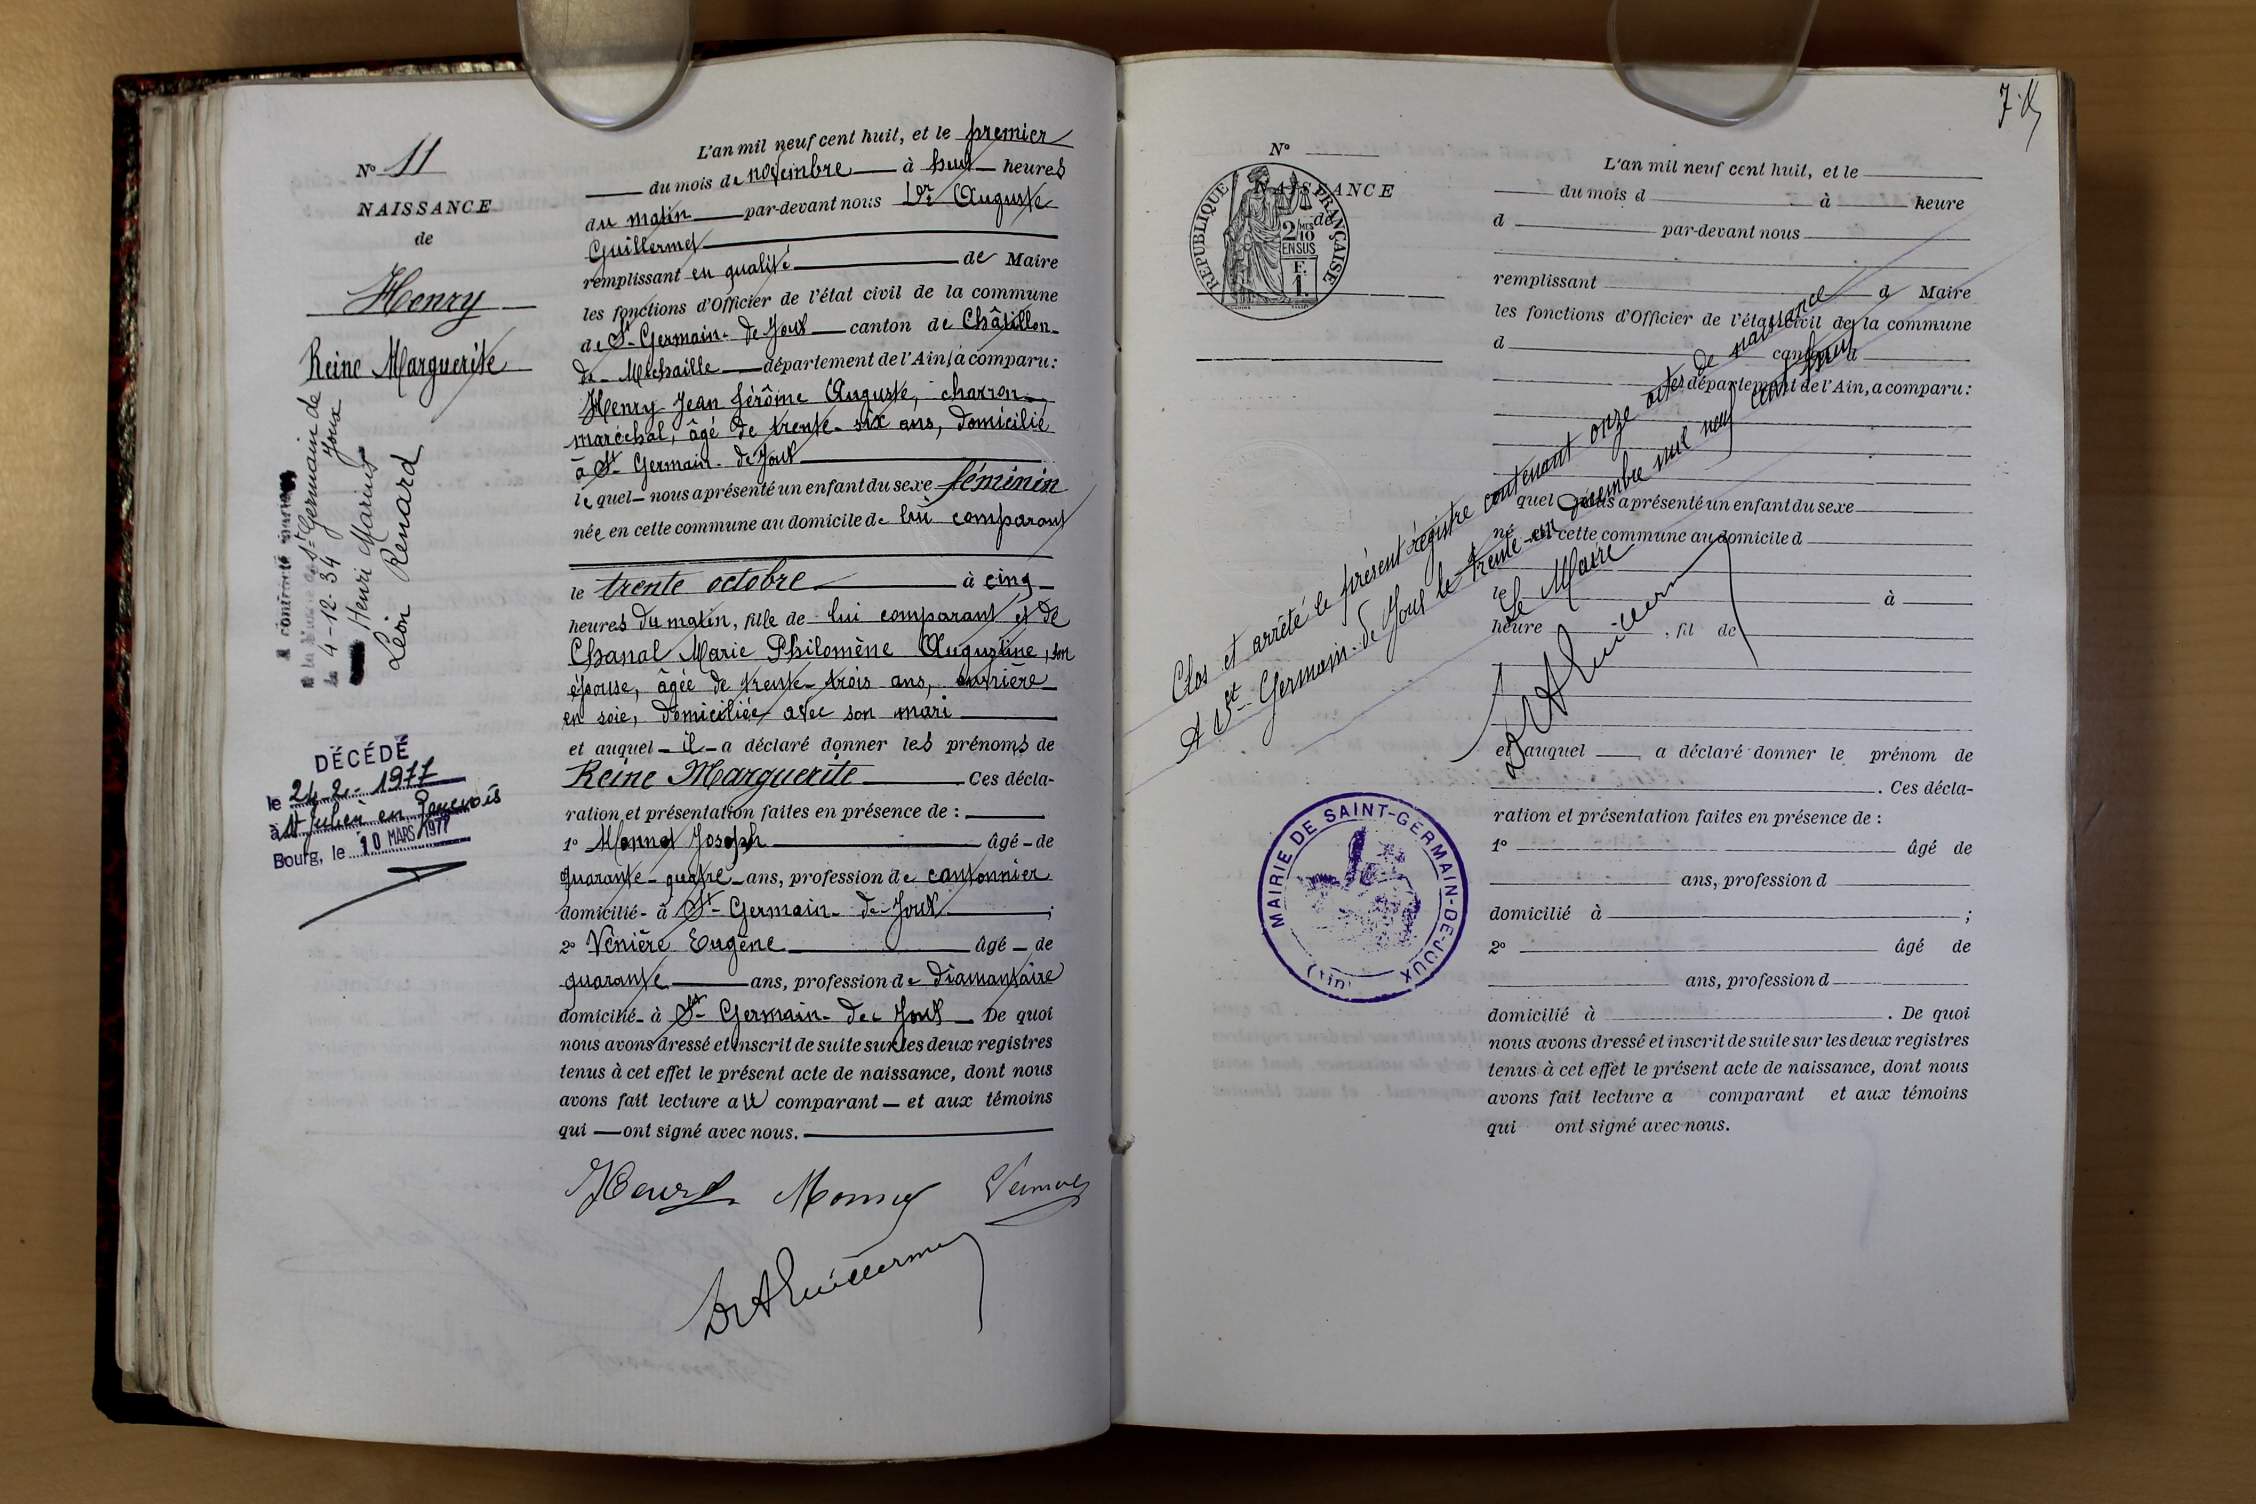 N° 11
NAISSANCE
de
Henry
Reine Marguerite
A contracté mariage
à la Mairie de St Germain de Joux
le 4-12-34
Henri Marius
Léon Renard
DÉCÉDÉ
le 24.2.-1977
à St Julien en Genevois
Bourg, le 10 MARS 1977
L'an mil neuf cent huit, et le premier
du mois de novembre à huit heures
du matin par-devant nous Dr Auguste
Guillermet
remplissant en qualité de Maire
les fonctions d'Officier de l'état civil de la commune
de St Germain-de Joux canton de Châtillon-
de-Michaille département de l'Ain, a comparu:
Henry Jean Jérôme Auguste, charron-
maréchal, âgé de trente-six ans, domicilié
à St Germain-de Joux
lequel nous a présenté un enfant du sexe féminin
née en cette commune au domicile de lui comparant
le trente octobre à cinq
heures du matin, fille de lui comparant et de
Chanal Marie Philomène Augustine, son
épouse, âgée de trente-trois ans, ouvrière
en soie, domiciliée avec son mari
et auquel il a déclaré donner les prénoms de
Reine Marguerite Ces décla-
ration et présentation faites en présence de :
1° Monnet Joseph âgé de
quarante-quatre ans, profession de cantonnier
domicilié à St Germain-de-Joux ;
2° Venière Eugène âgé de
quarante ans, profession de diamantaire
domicilié à St Germain-de Joux De quoi
nous avons dressé et inscrit de suite sur les deux registres
tenus à cet effet le présent acte de naissance, dont nous
avons fait lecture au comparant et aux témoins
qui ont signé avec nous.
Henry Monnet
Dr A Guillermet
N°
NAISSANCE
de
RÉPUBLIQUE FRANÇAISE
2/10 MES
EN SUS
F.
1.
L'an mil neuf cent huit, et le
du mois d à heure
d par-devant nous
remplissant d Maire
les fonctions d'Officier de l'état civil de la commune
d canton d
département de l'Ain, a comparu:
quel nous a présenté un enfant du sexe
né en cette commune au domicile d
le à
heure , fil de
et auquel a déclaré donner le prénom de
. Ces décla-
ration et présentation faites en présence de :
1° âgé de
ans, profession d
domicilié à ;
2° âgé de
ans, profession d
domicilié à . De quoi
nous avons dressé et inscrit de suite sur les deux registres
tenus à cet effet le présent acte de naissance, dont nous
avons fait lecture a comparant et aux témoins
qui ont signé avec nous.
Clos et arrêté le présent régistre contenant onze actes de naissance
A St Germain-de Joux le trente-et-un décembre mil neuf cent huit
Le Maire
Dr A Guillermet
MAIRIE DE SAINT-GERMAIN-DE-JOUX
(Ain)